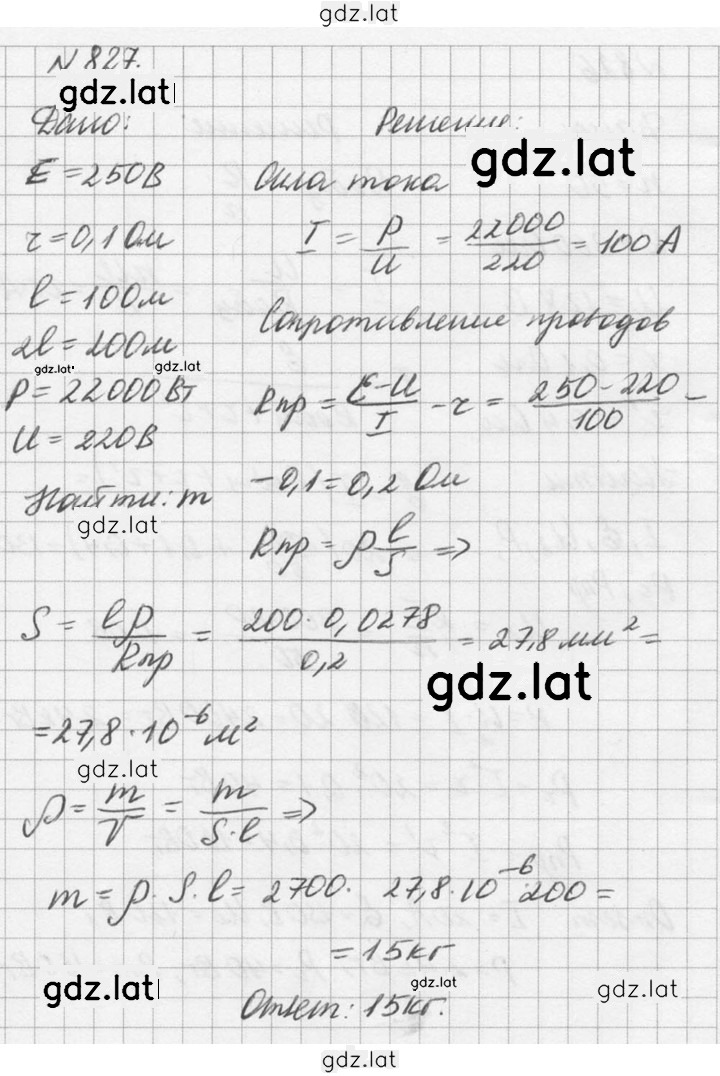 gdz.lat
N 827.
gdz.lat
Дано:
Решение:
gdz.lat
E = 250В
Сила тока
r = 0,1 Ом
I = P/U = 22000/220 = 100 А
l = 100м
Сопротивление проводов
2l = 200м
gdz.lat
gdz.lat
P = 22000 Вт
Rпр = (E-U)/I - r = (250-220)/100 -
U = 220В
Найти: m
- 0,1 = 0,2 Ом
gdz.lat
Rпр = ρ l/S =>
S = lρ/Rпр = (200·0,0278)/0,2 = 27,8 мм² =
gdz.lat
= 27,8·10⁻⁶ м²
gdz.lat
ρ = m/V = m/(S·l) =>
m = ρ·S·l = 2700· 27,8·10⁻⁶·200 =
= 15кг
gdz.lat
gdz.lat
gdz.lat
Ответ: 15кг.
gdz.lat